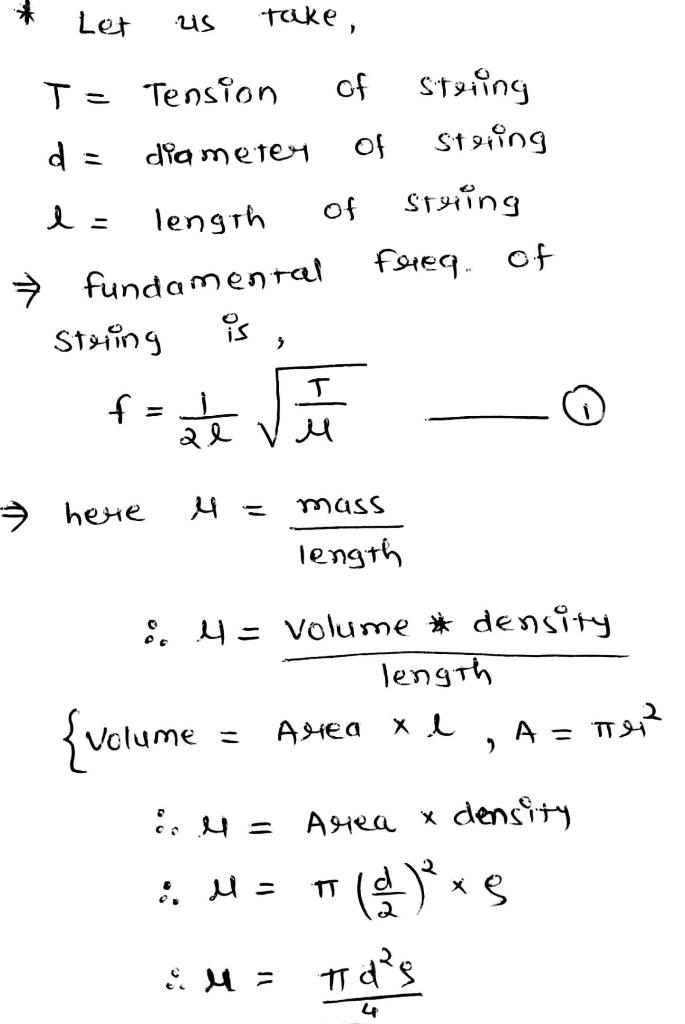 * Let us take,
T = Tension of string
d = diameter of string
l = length of string
⇒ fundamental freq. of
string is,
f = 1/2l √(T/μ) ——— (1)
⇒ here μ = mass/length
∴ μ = Volume * density/length
{Volume = Area x l, A = πr²
∴ μ = Area x density
∴ μ = π (d/2)² x ρ
∴ μ = πd²ρ/4